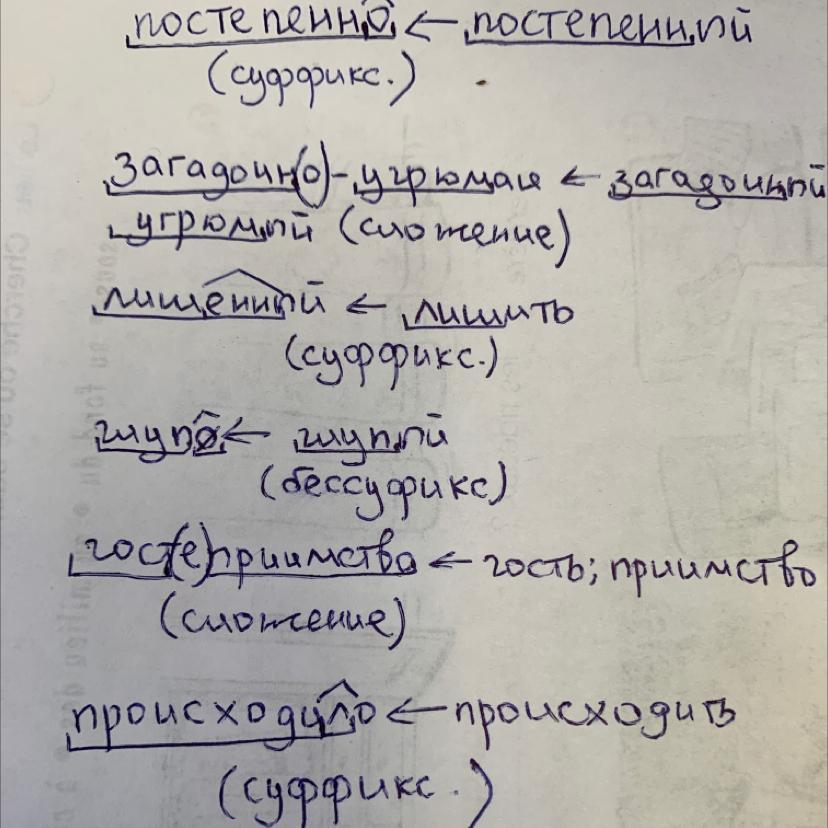 постепенно ← постепенный
(суффикс.)
загадочн(о)-угрюмая ← загадочный
угрюмый (сложение)
лишенный ← лишить
(суффикс.)
глупо ← глупый
(бессуфикс)
гост(е)приимство ← гость; приимство
(сложение)
происходило ← происходить
(суффикс.)